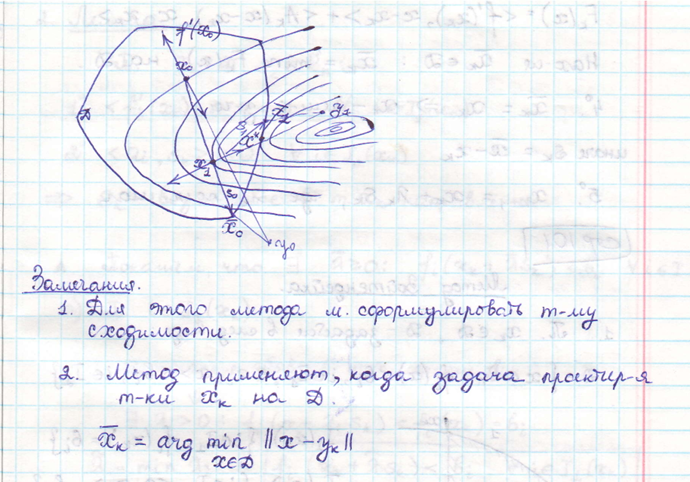 f'(x₀)
x₀
D
y₁
x̄₁
s₁
x*
x₁
s₀
x̄₀
y₀
Замечания.
1. Для этого метода м. сформулировать т-му
сходимости.
2. Метод применяют, когда задача проектир-я
т-ки x_k на D.
x̄_k = arg min ‖x - y_k‖
x∈D